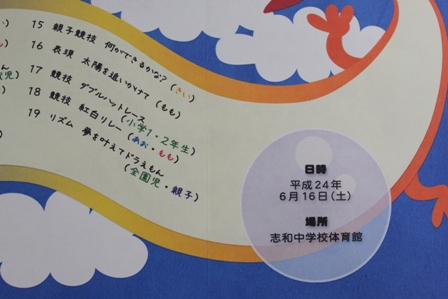 15 親子競技 何ができるかな? (きい)
16 表現 太陽を追いかけて (もも)
17 競技 ダブルハットレース
(小学1・2年生)
18 競技 紅白リレー (あお・もも)
19 リズム 夢を叶えてドラえもん
(全園児・親子)
日時
平成24年
6月16日(土)
場所
志和中学校体育館